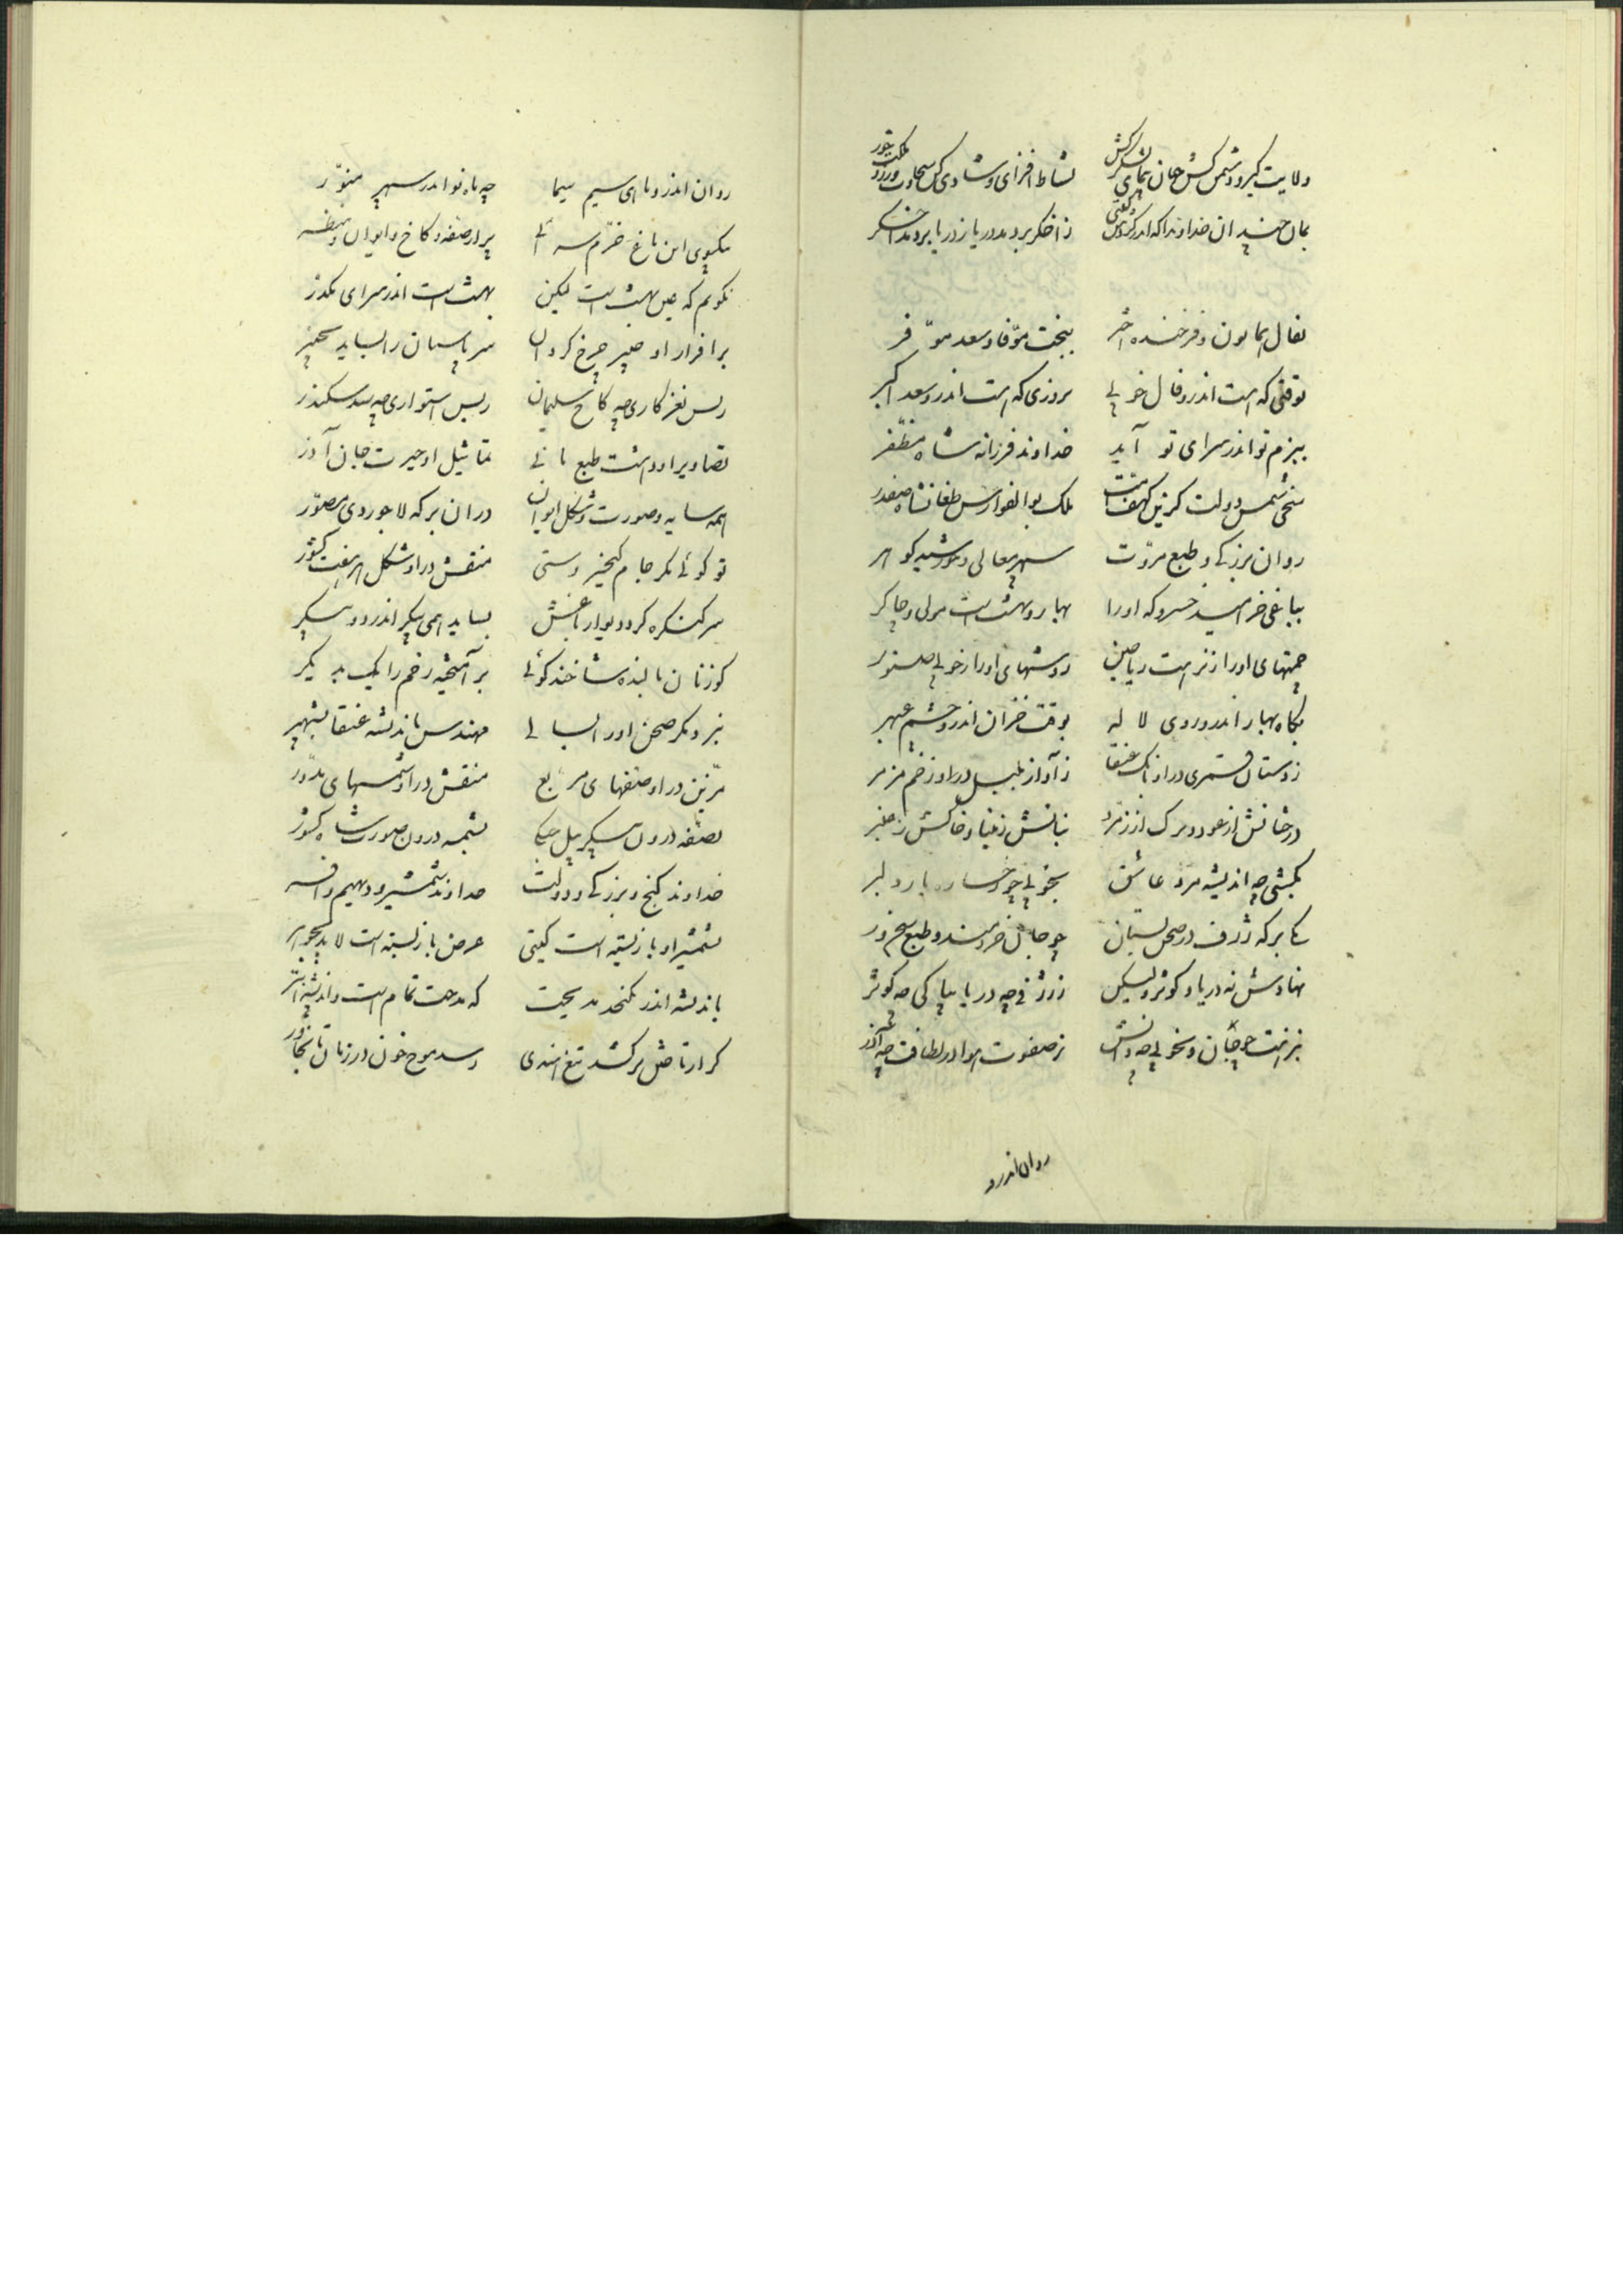 ولایت گیر و دشمن کش جهان بخشای لشکرکش نشاط افزای و شادی کن سخاوت ورز
بمان چندان خداوندا که اندر زاخگر بردمد دریا ز دریا بردمد اخگر
بفال همایون و فرخنده اختر ببخت موفا و سعد موفر
بوقتی که هست اندرو فال خوبی بروزی که هست اندرو سعد اکبر
ببزم نو اندر سرای نو آید خداوند فرزانه شاه مظفر
سخی شمس دولت گزین کهف امت ملک بوالفوارس طغانشاه صفدر
روان بزرگی و طبع مروت سپهر معالی و خورشید گوهر
بباغی خرامید خسرو که او را بهار و بهشت است مولی و چاکر
چمنهای او را ز نزهت ریاحین روشهای او را ز خوبی صنوبر
بگاه بهار اندرو روی لاله بوقت خزان اندرو چشم عبهر
ز دستان قمری درو بانگ عنقا ز آواز بلبل درو زخم مزمر
درختانش از عود و برگ از زمرد نباتش ز مینا و خاکش ز عنبر
بکشی چه اندیشه مرد عاشق بخوبی چو رخساره یار دلبر
یکی برکه ژرف در صحن بستان چو جان خردمند و طبع سخنور
نهادش نه دریا و کوثر ولیکن ز ژرفی چه دریا بپاکی چه کوثر
بنزهت چو جان و بخوبی چو دانش ز صفوت هوا در لطافت چه آذر
روان اندرو
روان اندرو ماهی سیم سیما چه ماه نو اندر سپهر منور
بیکسوی این باغ خرم سرائی پر از صفه و کاخ و ایوان و منظر
نگویم که عین بهشت است لیکن بهشت است اندر سرای مکدر
بر افراز او چنبر چرخ گردان سر پاسبان را بساید بچنبر
ز بس نغز کاری چه کاخ سلیمان ز بس استواری چه سد سکندر
تصاویر او دهشت طبع مانی تماثیل او حیرت جان آذر
همه سایه و صورت و شکل ایوان در آن برکه لاجوردی مصور
تو گوئی مگر جام کیخسروستی منقش درو شکل هر هفت کشور
سر کنگره گرد دیوار باغش بساید همی پیکر اندر دو پیکر
گوزنان بالنده شاخند گوئی بر آمیخته زخم را یک بدیگر
نبرد مگر صحن او را بسالی مهندس باندیشه عنقا بشهپر
مزین درو صفهای مربع منقش درو شمسهای مدور
بصفه درون پیکر پیل جنگی بشمسه درون صورت شاه کشور
خداوند گنج و بزرگی و دولت خداوند شمشیر و دیهیم و افسر
بشمشیر او باز بسته است گیتی عرض باز بسته است لابد بجوهر
باندیشه اندر نگنجد مدیحت که مدحت تمام است و اندیشه ابتر
گر او را تش برکشد تیغ هندی رسد موج خون در زمان تا بخاور